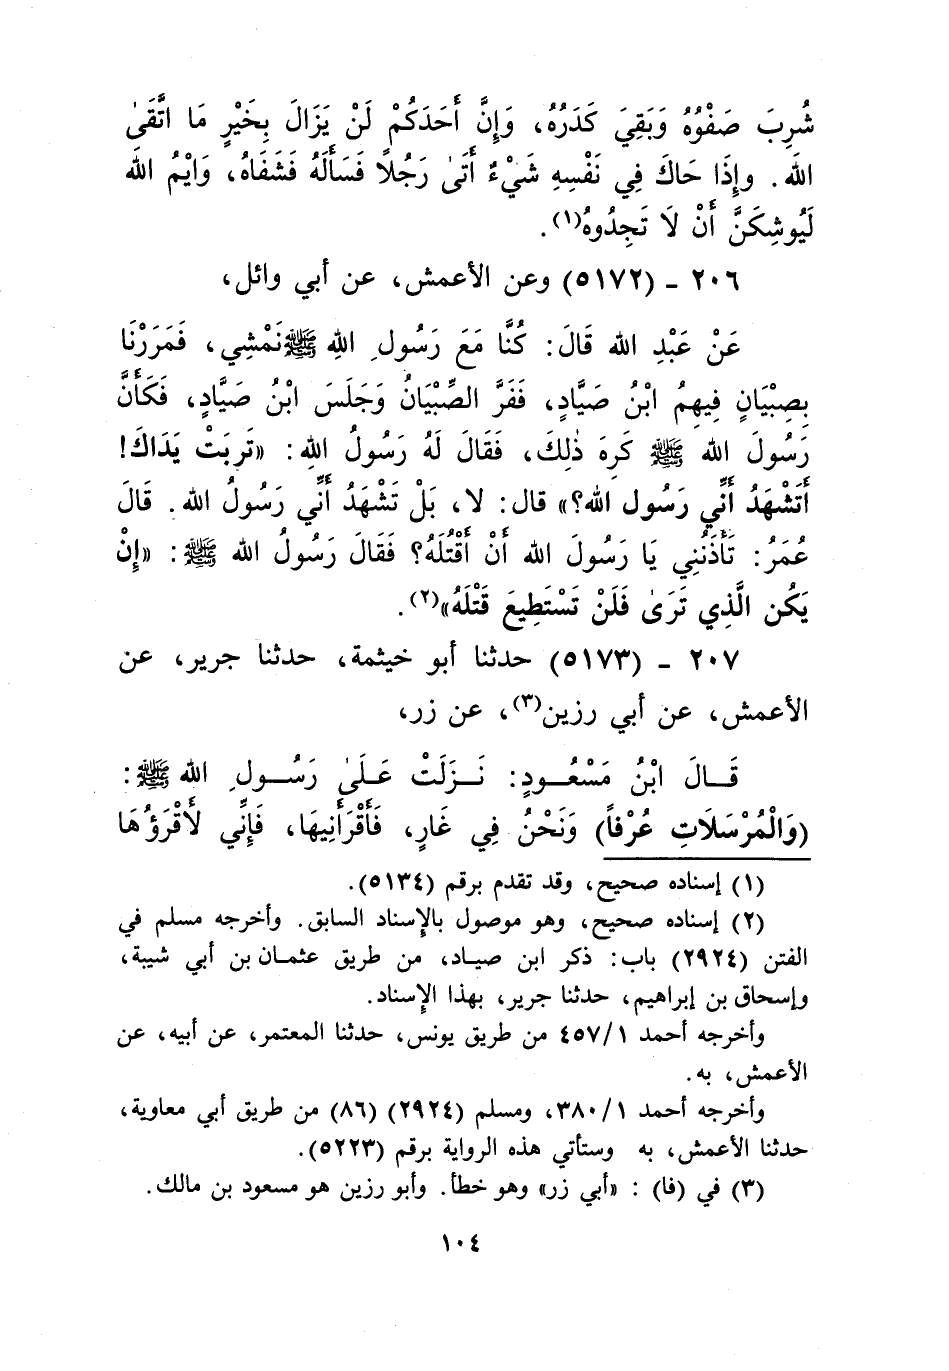 شُرِبَ صَفْوُهُ وَبَقِيَ كَدَرُهُ، وَإِنَّ أَحَدَكُمْ لَنْ يَزَالَ بِخَيْرٍ مَا اتَّقَىٰ
اللهَ. وإِذَا حَاكَ فِي نَفْسِهِ شَيْءٌ أَتَىٰ رَجُلًا فَسَأَلَهُ فَشَفَاهُ، وَايْمُ اللهِ
لَيُوشِكَنَّ أَنْ لَا تَجِدُوهُ(١).
٢٠٦ - (٥١٧٢) وعن الأعمش، عن أبي وائل،
عَنْ عَبْدِ الله قَالَ: كُنَّا مَعَ رَسُولِ اللهِ ﷺ نَمْشِي، فَمَرَرْنَا
بِصِبْيَانٍ فِيهِمُ ابْنُ صَيَّادٍ، فَفَرَّ الصِّبْيَانُ وَجَلَسَ ابْنُ صَيَّادٍ، فَكَأَنَّ
رَسُولَ الله ﷺ كَرِهَ ذٰلِكَ، فَقَالَ لَهُ رَسُولُ اللهِ: «تَرِبَتْ يَدَاكَ!
أَتَشْهَدُ أَنِّي رَسُول الله؟» قال: لا، بَلْ تَشْهَدُ أَنِّي رَسُولُ الله. قَالَ
عُمَرُ: تَأْذَنُنِي يَا رَسُولَ الله أَنْ أَقْتُلَهُ؟ فَقَالَ رَسُولُ الله ﷺ: «إِنْ
يَكُن الَّذِي تَرَىٰ فَلَنْ تَسْتَطِيعَ قَتْلَهُ»(٢).
٢٠٧ - (٥١٧٣) حدثنا أبو خيثمة، حدثنا جرير، عن
الأعمش، عن أبي رزين(٣)، عن زر،
قَـالَ ابْنُ مَسْعُـودٍ: نَـزَلَتْ عَـلَىٰ رَسُـولِ الله ﷺ:
(وَالْمُرْسَلَاتِ عُرْفاً) وَنَحْنُ فِي غَارٍ، فَأَقْرَأَنِيهَا، فَإِنِّي لَأَقْرَؤُهَا
(١) إسناده صحيح، وقد تقدم برقم (٥١٣٤).
(٢) إسناده صحيح، وهو موصول بالإسناد السابق. وأخرجه مسلم في
الفتن (٢٩٢٤) باب: ذكر ابن صياد، من طريق عثمان بن أبي شيبة،
وإسحاق بن إبراهيم، حدثنا جرير، بهذا الإسناد.
وأخرجه أحمد ١/ ٤٥٧ من طريق يونس، حدثنا المعتمر، عن أبيه، عن
الأعمش، به.
وأخرجه أحمد ١/ ٣٨٠، ومسلم (٢٩٢٤) (٨٦) من طريق أبي معاوية،
حدثنا الأعمش، به وستأتي هذه الرواية برقم (٥٢٢٣).
(٣) في (فا) : «أبي زر» وهو خطأ. وأبو رزين هو مسعود بن مالك.
١٠٤